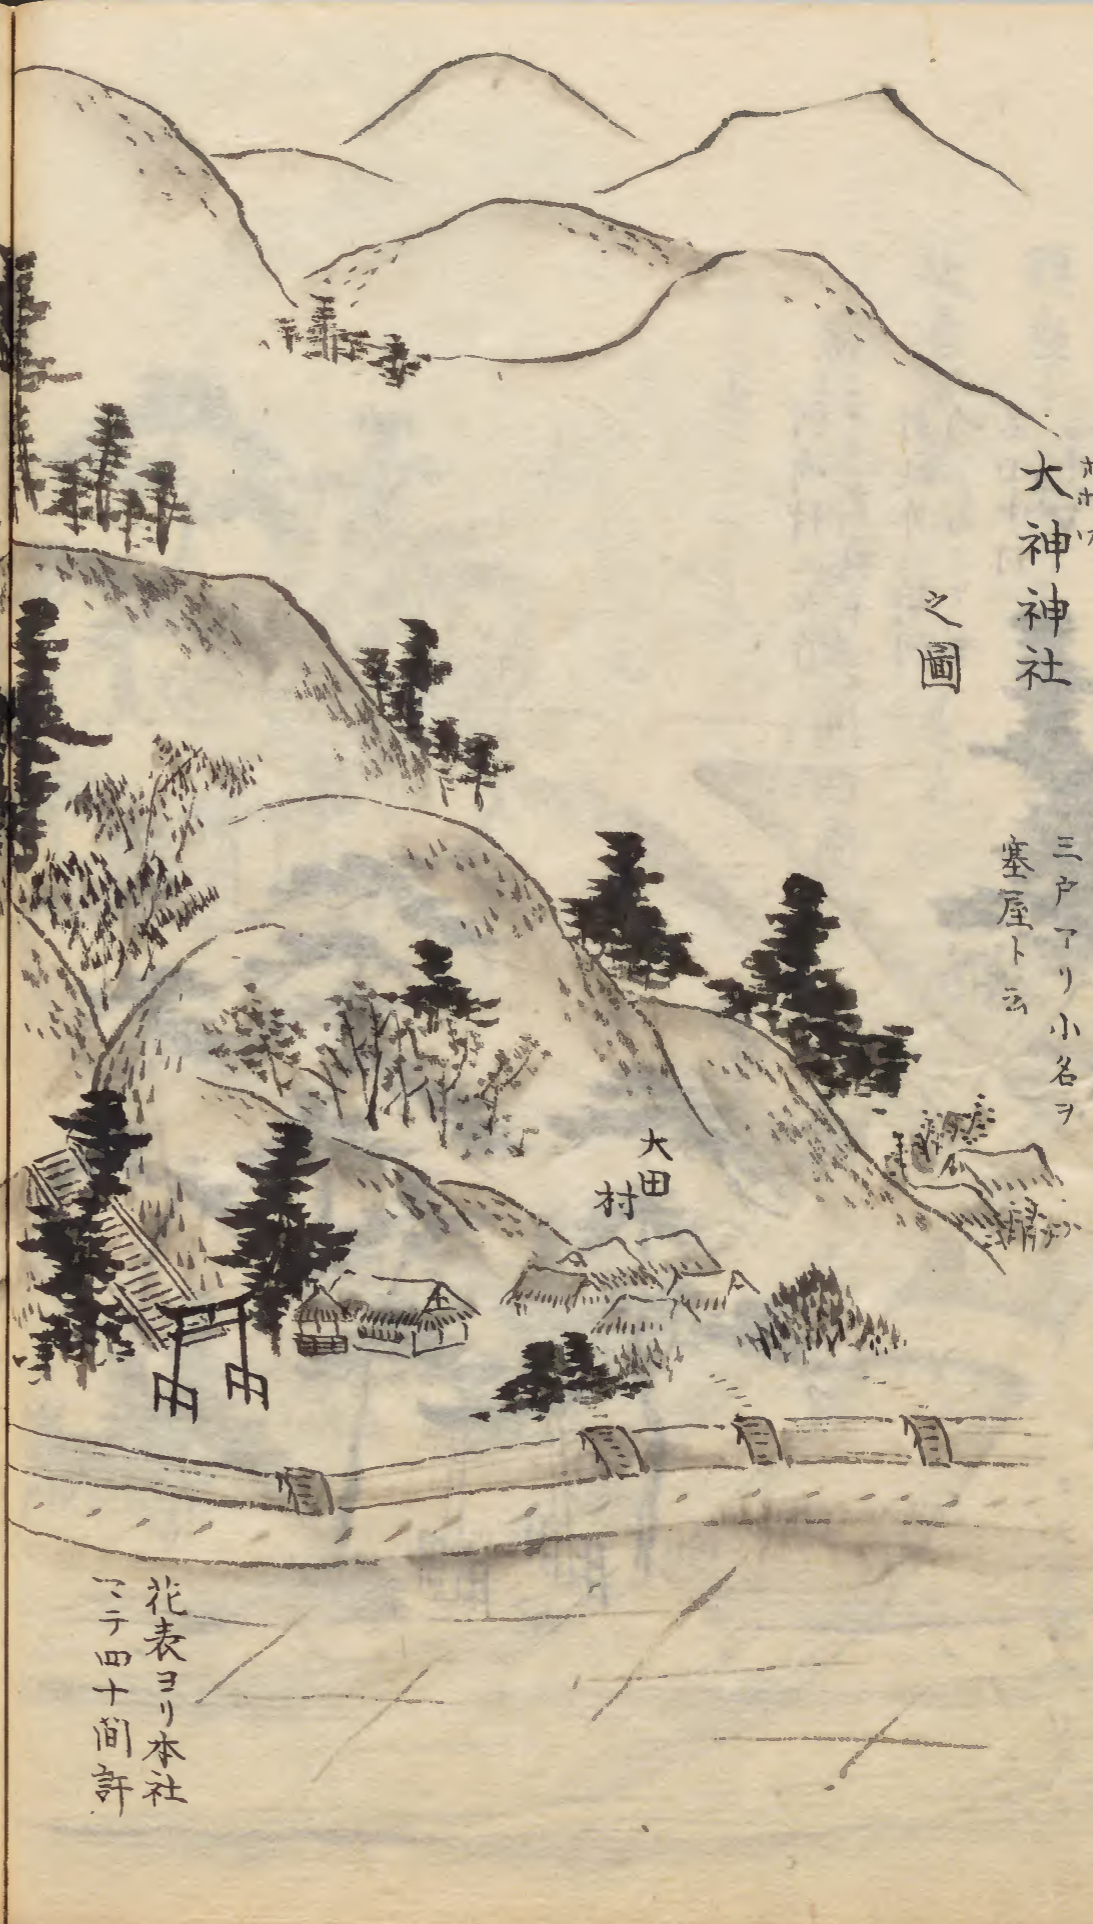 大神神社
之圖
三戸アリ小名ヲ
塞屋ト云
大田
村
花表ヨリ本社
マテ四十間許